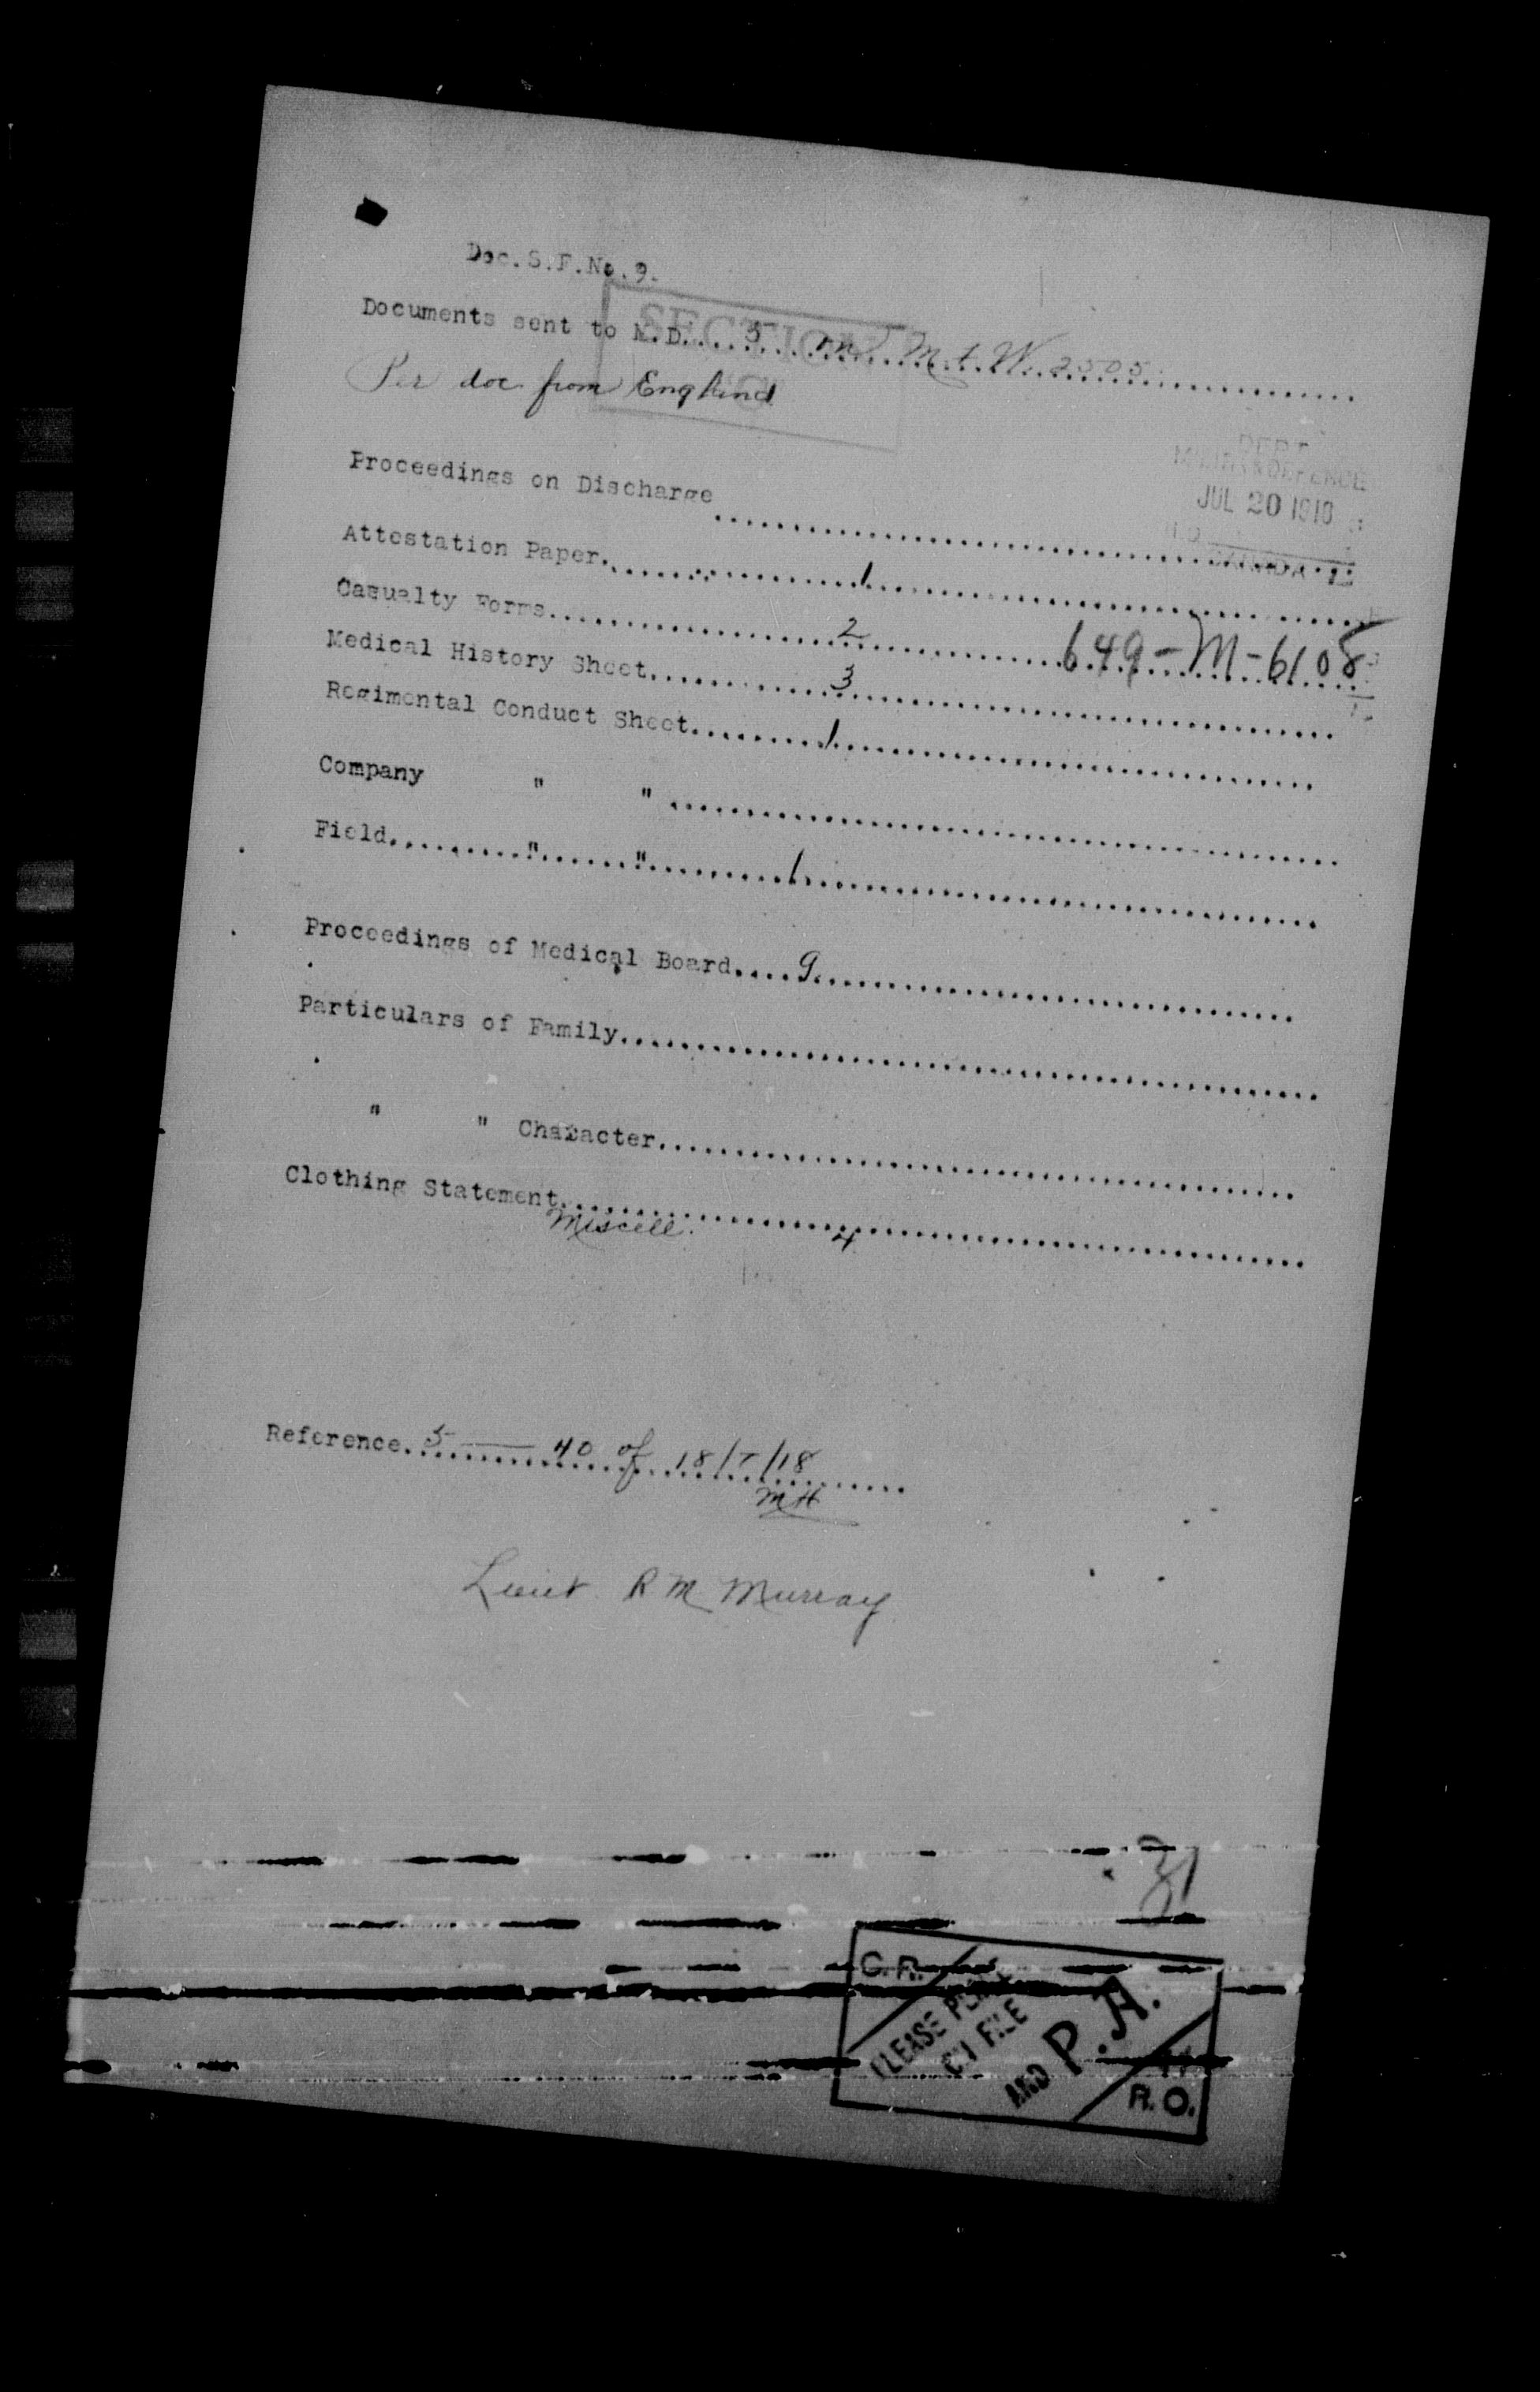 Doc. S. F. No. 9.
SECTION
Documents sent to M.D.....5.......M.t.W. 2505
Per doc from England
DEPT
MILITIA & DEFENCE
JUL 20 1918
H.Q.
CANADA
Proceedings on Discharge
Attestation Paper..........1
Casualty Forms..........2
649-M-6108
Medical History Sheet..........3
Regimental Conduct Sheet..........1
Company " "
Field.........."......"..........1
Proceedings of Medical Board....9
Particulars of Family
" " Character
Clothing Statement
Miscell. 4
Reference. 5 — 40 of 18/7/18
MH
Lieut R M Murray
31
C.R.
PLEASE PLACE
ON FILE
AND P.A.
R.O.